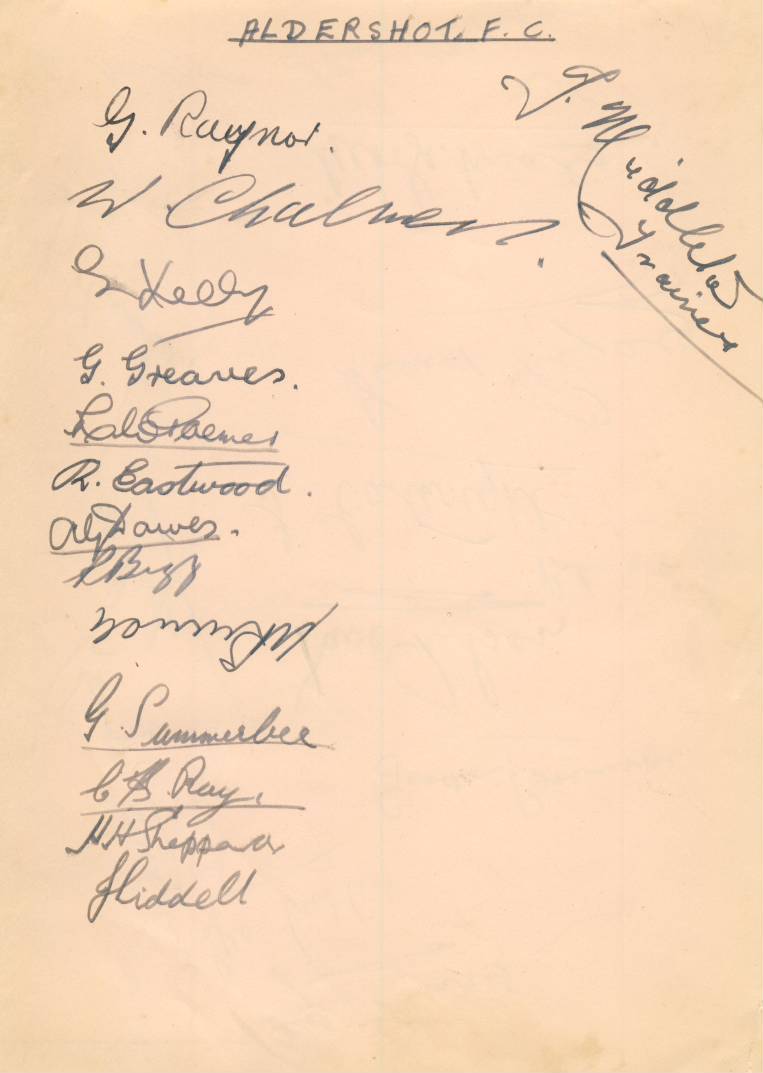 ALDERSHOT. F. C.
G. Raynor.
W. Chalmers.
G. Kelly
G. Greaves.
R. Eastwood.
Alf Dawes.
R Bigg
G Summerbee
C H S Ray.
H H Sheppard
J Liddell
T. Middleton
Trainer